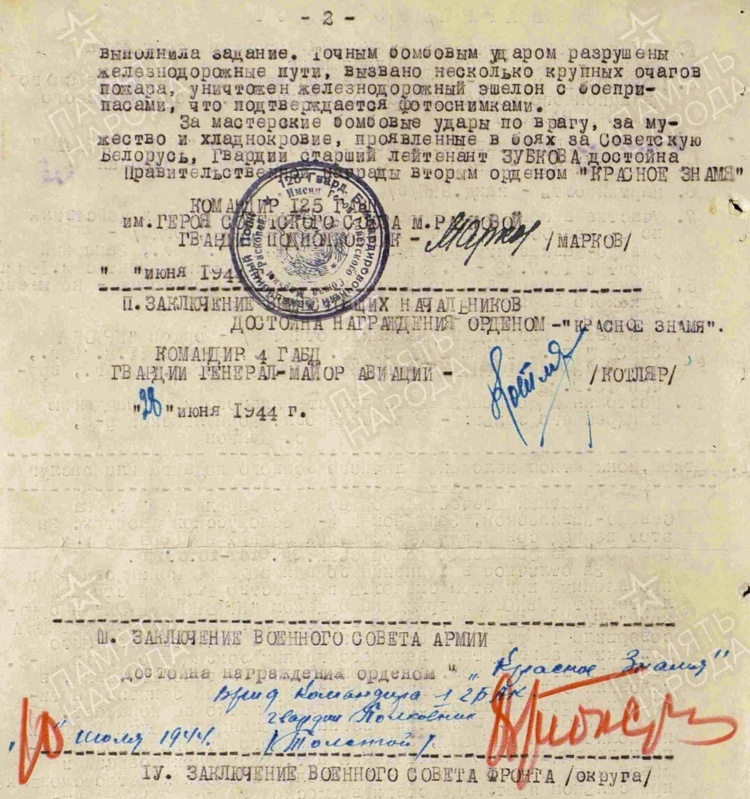 - 2 -
выполнила задание. Точным бомбовым ударом разрушены
железнодорожные пути, вызвано несколько крупных очагов
пожара, уничтожен железнодорожный эшелон с боепри-
пасами, что подтверждается фотоснимками.
За мастерские бомбовые удары по врагу, за му-
жество и хладнокровие, проявленные в боях за Советскую
Белорусь, Гвардии старший лейтенант ЗУБКОВА достойна
Правительственной награды вторым орденом "КРАСНОЕ ЗНАМЯ"
КОМАНДИР 125
им. ГЕРОЯ СОВЕТСКОГО СОЮЗА М. РАСКОВОЙ
ГВАРДИИ ПОДПОЛКОВНИК - Марков /МАРКОВ/
" " июня 194
П. ЗАКЛЮЧЕНИЕ НАЧАЛЬНИКОВ
ДОСТОЙНА НАГРАЖДЕНИЯ ОРДЕНОМ - "КРАСНОЕ ЗНАМЯ".
КОМАНДИР 4 ГАБД
ГВАРДИИ ГЕНЕРАЛ-МАЙОР АВИАЦИИ - Котляр /КОТЛЯР/
"28" июня 1944 г.
Ш. ЗАКЛЮЧЕНИЕ ВОЕННОГО СОВЕТА АРМИИ
достойна награждения орденом " "Красное Знамя"
Врид Командира 1 гБАК
гвардии Полковник
"10" июля 1944г. (Толстой)
IУ. ЗАКЛЮЧЕНИЕ ВОЕННОГО СОВЕТА ФРОНТА /округа/
ПАМЯТЬ НАРОДА